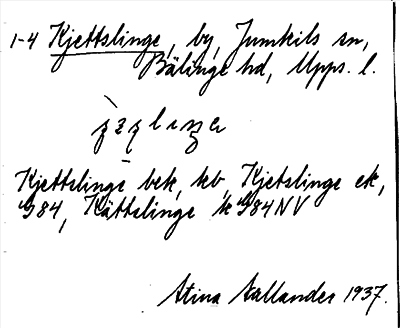 1-4 Kjettslinge, by, Jumkils sn,
Bälinge hd, Upps. l.
Kjettslinge bek, kb, Kjetslinge ek,
G84, Kättslinge k G84NV
Stina Sallander 1937.